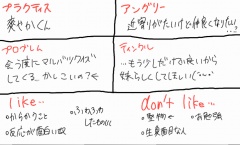 プラクティス
爽やかくん
アングリー
近寄りがたいけど仲良くなりたい…!
プログレム
会う度にマルバツクイズ
してくる。かしこいの?
ティンクル
…もう少しだけ良いから
妹らしくしてほしい(
like…
・からかうこと
・反応が面白い奴
・ふわふわ
したもの
don't like…
・堅物
・お勉強
・生真面目な人